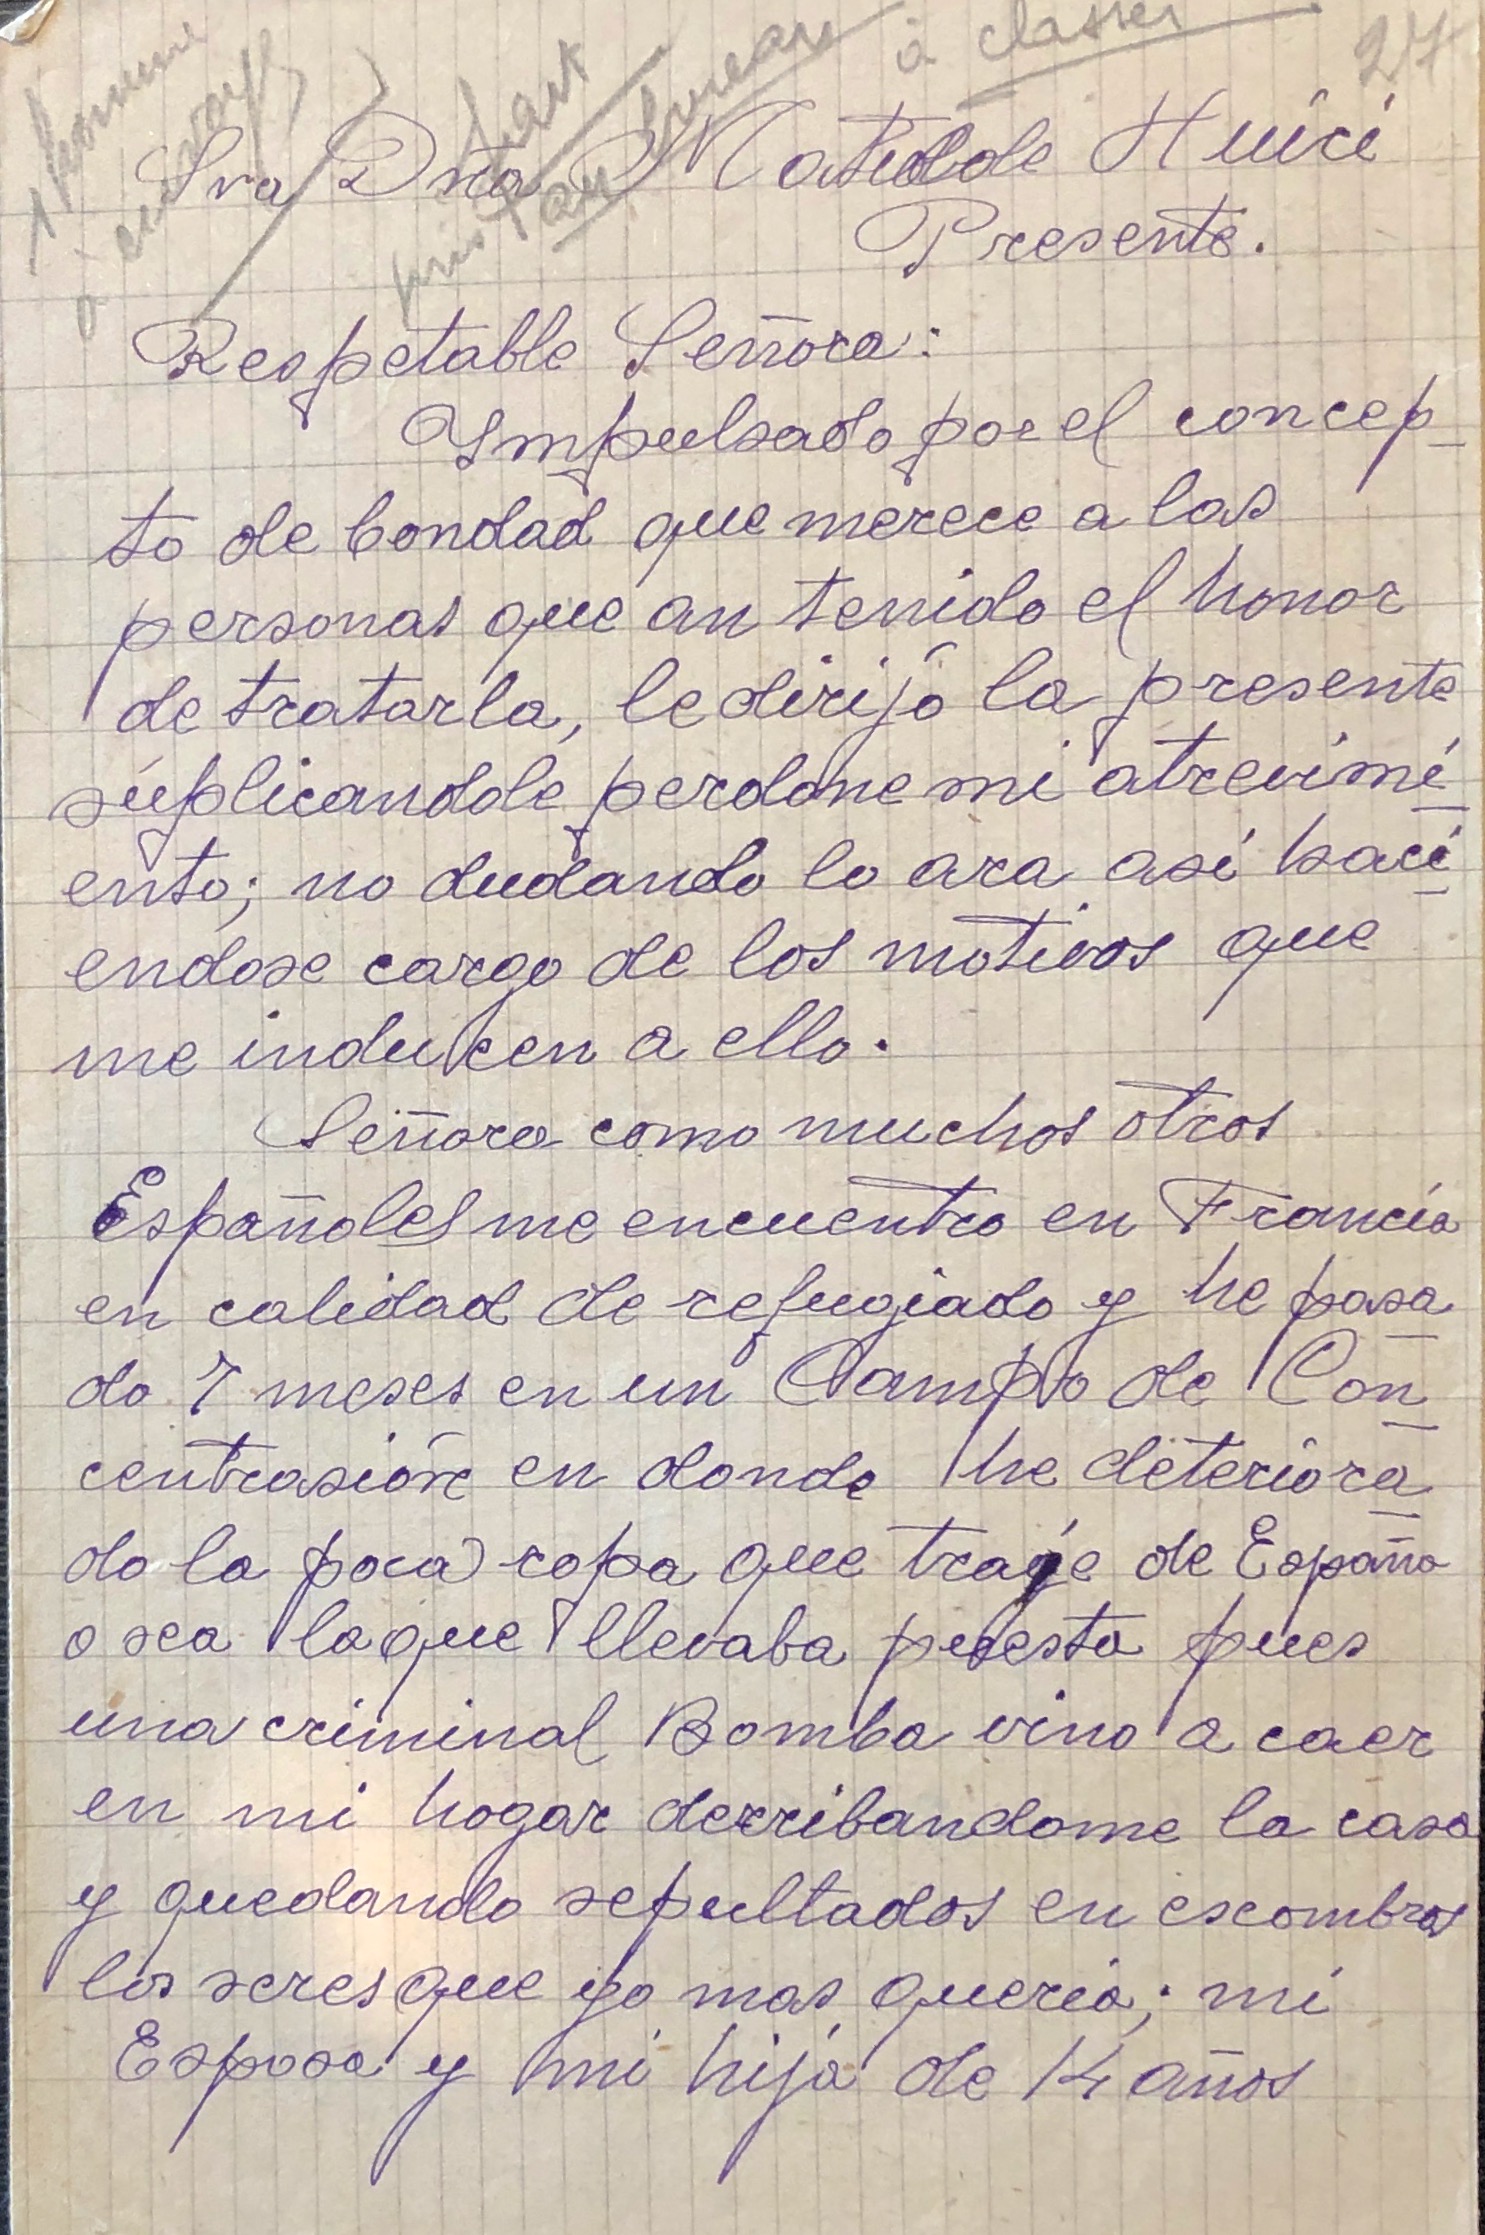 à classer
27
1 homme
à envoyer
puis
au bureau
Sra Dña Matilde Huici
Presente.
Respetable Señora:
Ympulsado por el concep-
to de bondad que merece a las
personas que an tenido el honor
de tratarla, le dirijó la presente
súplicandole perdone mi atrevimi-
ento; no dudando lo ara asi haci-
endose cargo de los motivos que
me inducen a ello.
Señora como muchos otros
Españoles me encuentro en Francia
en calidad de refugiado y he pasa-
do 7 meses en un Campo de Con-
centrasión en donde he deteriora-
do la poca ropa que traje de España
o sea la que llevaba puesta pues
una criminal Bomba vino a caer
en mi hogar derribandome la casa
y quedando sepultados en escombros
los seres que yo mas queria; mi
Esposa y mi hija de 14 años